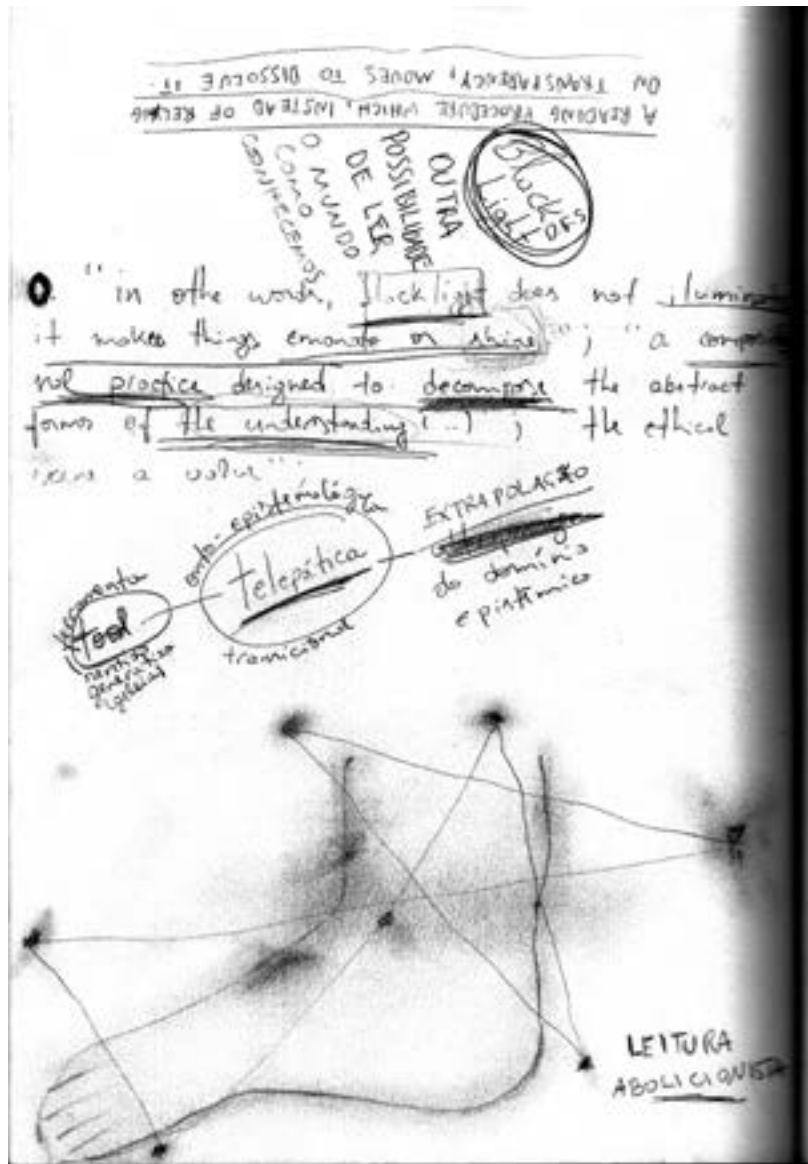 A READING PROCEDURE WHICH, INSTEAD OF RELYING
ON TRANSPARENCY, MOVES TO DISSOLVE IT.
Black
Light
OUTRA
POSSIBILIDADE
DE LER
O MUNDO
COMO
CONHECEMOS
"in othe words, blacklight does not ilumin
it makes things emanate or shine"; "a compos
not practice designed to decompose the abstract
forms of the understanding (..) ; the ethical
a value"
onto-epistemológica
telepática
transicional
EXTRAPOLAÇÃO
do domínio
epistêmico
ferramenta
tool
LEITURA
ABOLICIONISTA